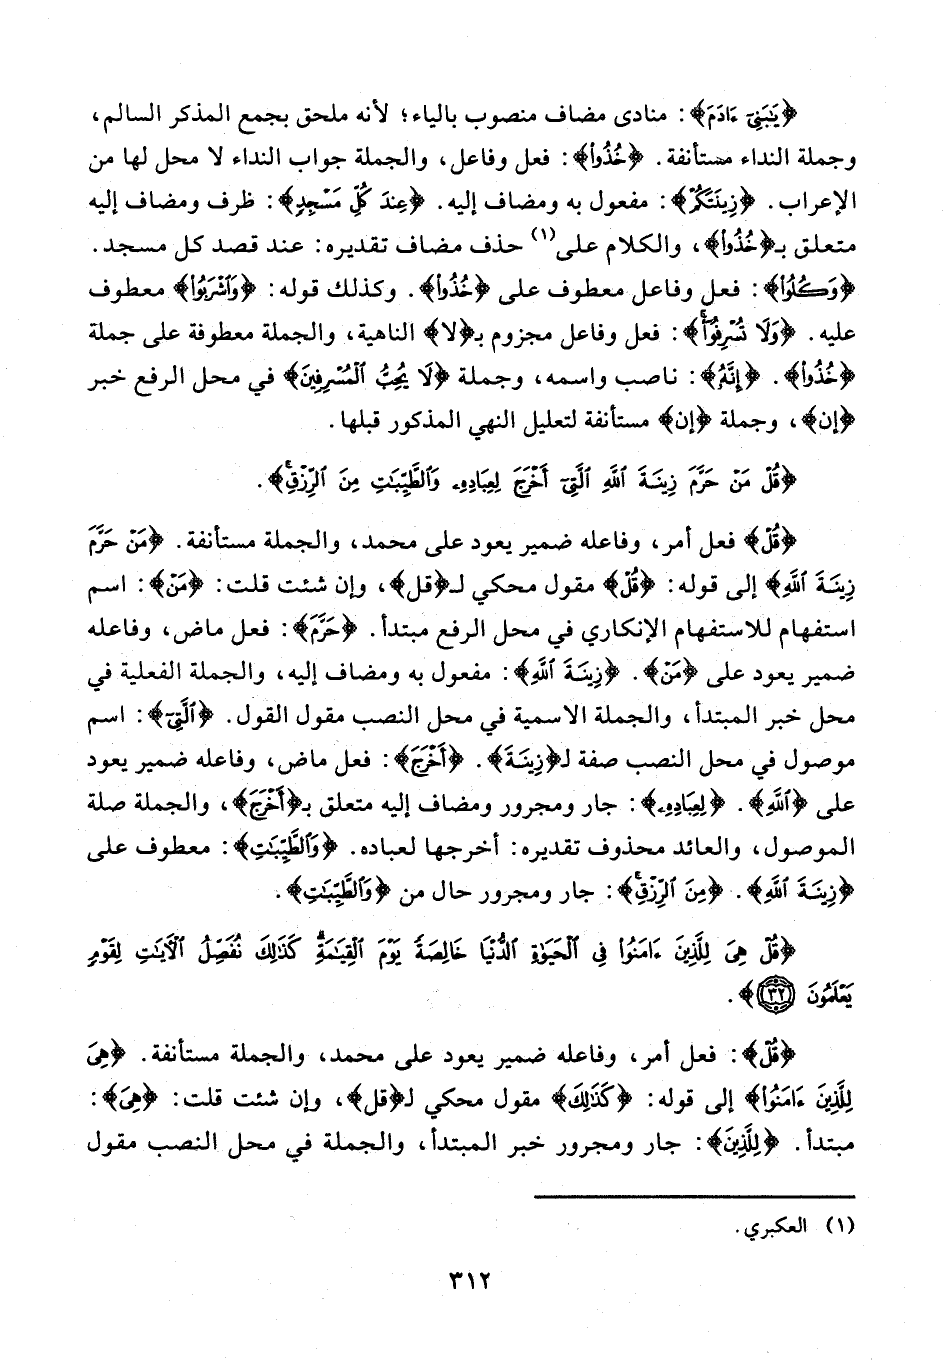 ﴿يَٰبَنِىٓ ءَادَمَ﴾: منادى مضاف منصوب بالياء؛ لأنه ملحق بجمع المذكر السالم،
وجملة النداء مستأنفة. ﴿خُذُوا۟﴾: فعل وفاعل، والجملة جواب النداء لا محل لها من
الإعراب. ﴿زِينَتَكُمْ﴾: مفعول به ومضاف إليه. ﴿عِندَ كُلِّ مَسْجِدٍ﴾: ظرف ومضاف إليه
متعلق بـ﴿خُذُوا۟﴾، والكلام على(١) حذف مضاف تقديره: عند قصد كل مسجد.
﴿وَكُلُوا۟﴾: فعل وفاعل معطوف على ﴿خُذُوا۟﴾. وكذلك قوله: ﴿وَٱشْرَبُوا۟﴾ معطوف
عليه. ﴿وَلَا تُسْرِفُوٓا۟ۚ﴾: فعل وفاعل مجزوم بـ﴿لا﴾ الناهية، والجملة معطوفة على جملة
﴿خُذُوا۟﴾. ﴿إِنَّهُۥ﴾: ناصب واسمه، وجملة ﴿لَا يُحِبُّ ٱلْمُسْرِفِينَ﴾ في محل الرفع خبر
﴿إن﴾، وجملة ﴿إن﴾ مستأنفة لتعليل النهي المذكور قبلها.
﴿قُلْ مَنْ حَرَّمَ زِينَةَ ٱللَّهِ ٱلَّتِىٓ أَخْرَجَ لِعِبَادِهِۦ وَٱلطَّيِّبَٰتِ مِنَ ٱلرِّزْقِۚ﴾.
﴿قُلْ﴾ فعل أمر، وفاعله ضمير يعود على محمد، والجملة مستأنفة. ﴿مَنْ حَرَّمَ
زِينَةَ ٱللَّهِ﴾ إلى قوله: ﴿قُلْ﴾ مقول محكي لـ﴿قل﴾، وإن شئت قلت: ﴿مَنْ﴾: اسم
استفهام للاستفهام الإنكاري في محل الرفع مبتدأ. ﴿حَرَّمَ﴾: فعل ماض، وفاعله
ضمير يعود على ﴿مَنْ﴾. ﴿زِينَةَ ٱللَّهِ﴾: مفعول به ومضاف إليه، والجملة الفعلية في
محل خبر المبتدأ، والجملة الاسمية في محل النصب مقول القول. ﴿ٱلَّتِىٓ﴾: اسم
موصول في محل النصب صفة لـ﴿زِينَةَ﴾. ﴿أَخْرَجَ﴾: فعل ماض، وفاعله ضمير يعود
على ﴿ٱللَّهِ﴾. ﴿لِعِبَادِهِۦ﴾: جار ومجرور ومضاف إليه متعلق بـ﴿أَخْرَجَ﴾، والجملة صلة
الموصول، والعائد محذوف تقديره: أخرجها لعباده. ﴿وَٱلطَّيِّبَٰتِ﴾: معطوف على
﴿زِينَةَ ٱللَّهِ﴾. ﴿مِنَ ٱلرِّزْقِۚ﴾: جار ومجرور حال من ﴿وَٱلطَّيِّبَٰتِ﴾.
﴿قُلْ هِىَ لِلَّذِينَ ءَامَنُوا۟ فِى ٱلْحَيَوٰةِ ٱلدُّنْيَا خَالِصَةً يَوْمَ ٱلْقِيَٰمَةِۗ كَذَٰلِكَ نُفَصِّلُ ٱلْءَايَٰتِ لِقَوْمٍ
يَعْلَمُونَ ٣٢﴾.
﴿قُلْ﴾: فعل أمر، وفاعله ضمير يعود على محمد، والجملة مستأنفة. ﴿هِىَ
لِلَّذِينَ ءَامَنُوا۟﴾ إلى قوله: ﴿كَذَٰلِكَ﴾ مقول محكي لـ﴿قل﴾، وإن شئت قلت: ﴿هِىَ﴾:
مبتدأ. ﴿لِلَّذِينَ﴾: جار ومجرور خبر المبتدأ، والجملة في محل النصب مقول
(١) العكبري.
٣١٢